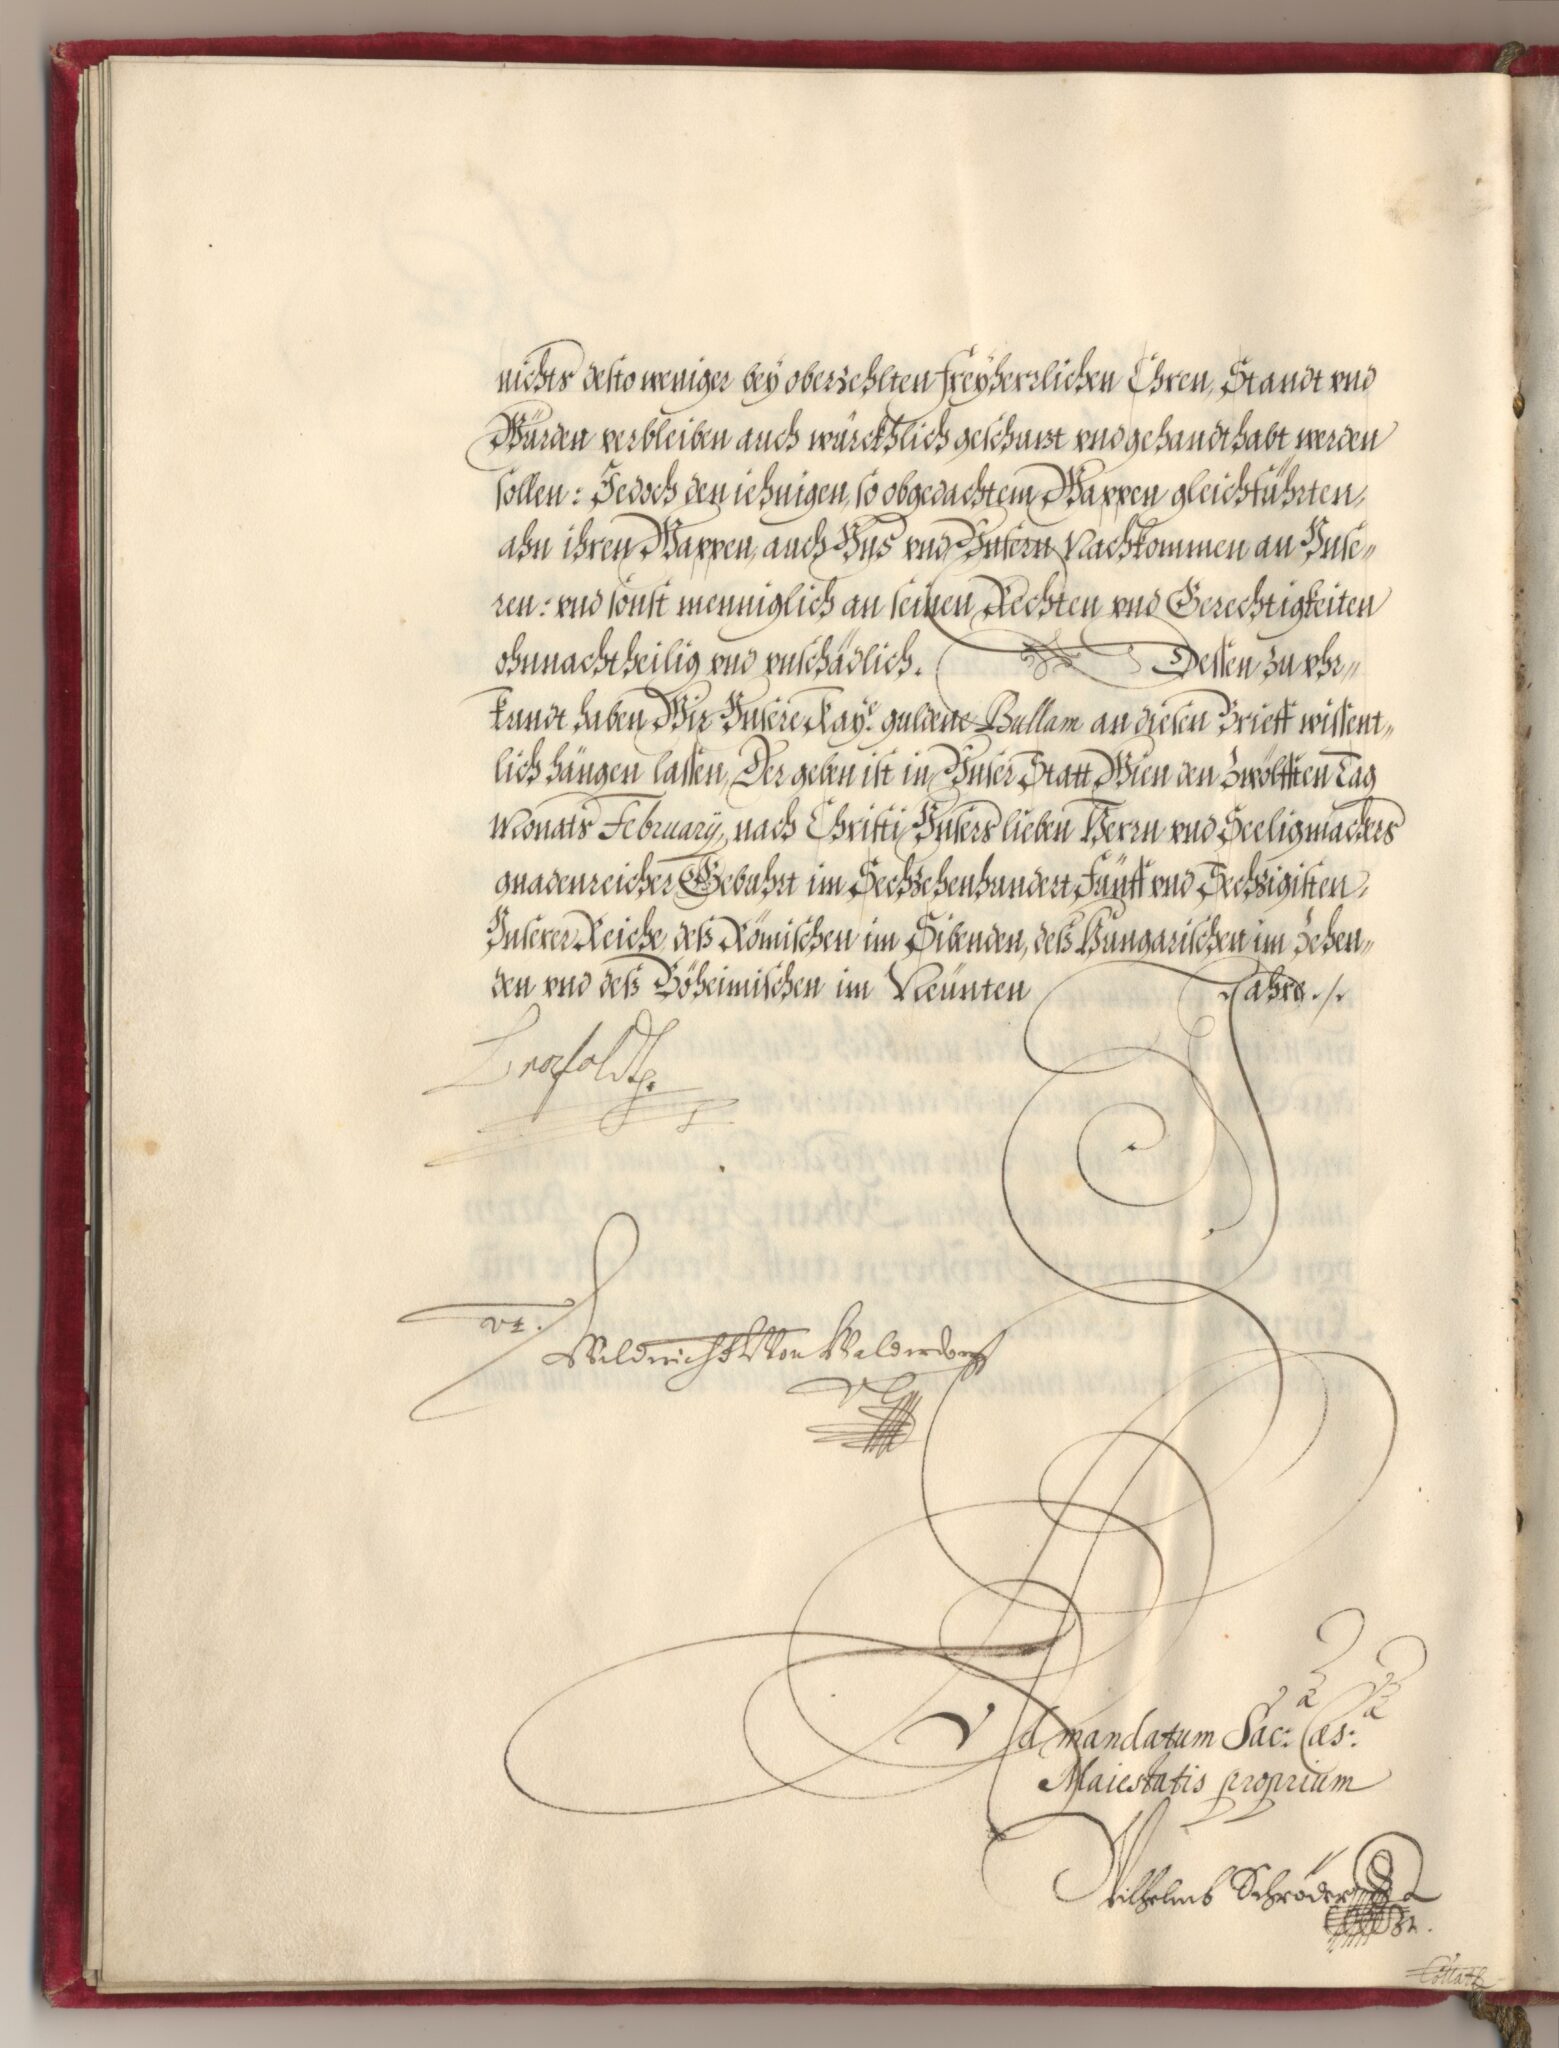 nichts desto weniger bey oberzehlten freyherrlichen Ehren, Standt vnd
Würden verbleiben auch würckhlich geschuzt vnd gehandthabt werden
sollen: Jedoch den iehnigen, so obgedachtem Wappen gleich führten,
ahn ihren Wappen, auch Vns vnd Vnsern Nachkommen an Vnse„
ren: vnd sonst menniglich an seinen Rechten vnd Gerechtigkeiten
ohnnachtheilig vnd vnschädlich. Dessen zu vhr„
kundt haben Wir Vnsere Kay.e guldene Bullam an diesen Brieff wissent„
lich hängen lassen, Der geben ist in Vnser Statt Wien den Zwölfften Tag
Monats February, nach Christi Vnsers lieben Herrn vnd Seeligmachers
gnadenreicher Gebuhrt im Sechzehenhundert Fünff vnd Sechzigisten,
Vnserer Reiche deß Römischen im Sibenden, deß Hungarischen im Zehen„
den vnd deß Böheimischen im Neünten Jahre ./.
Leopoldt
vt. Wildericht Von Walderdorff
Ad mandatum Sac:ae Caes:ae
Maiestatis proprium
Wilhelmb Schröder